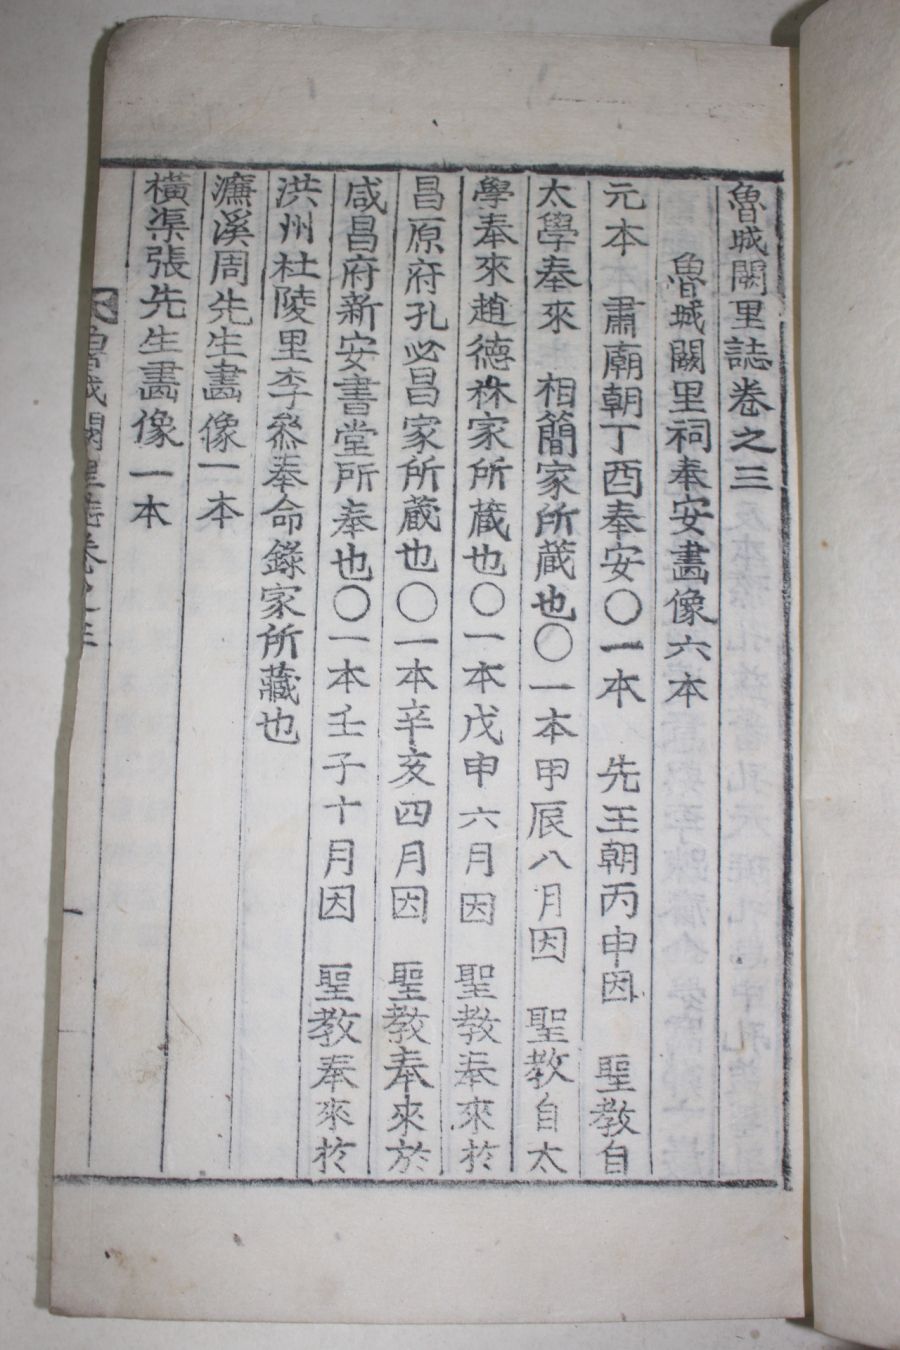 魯城闕里誌卷之三
魯城闕里祠奉安畵像六本
元本 肅廟朝丁酉奉安〇一本 先王朝丙申因 聖教自
太學奉來 相簡家所藏也〇一本甲辰八月因 聖教自太
學奉來趙德秾家所藏也〇一本戊申六月因 聖教奉來於
昌原府孔必昌家所藏也〇一本辛亥四月因 聖教奉來於
咸昌府新安書堂所奉也〇一本壬子十月因 聖教奉來於
洪州杜陵里李叅奉命錄家所藏也
濂溪周先生畵像一本
橫渠張先生畵像一本
魯城闕里誌卷之三